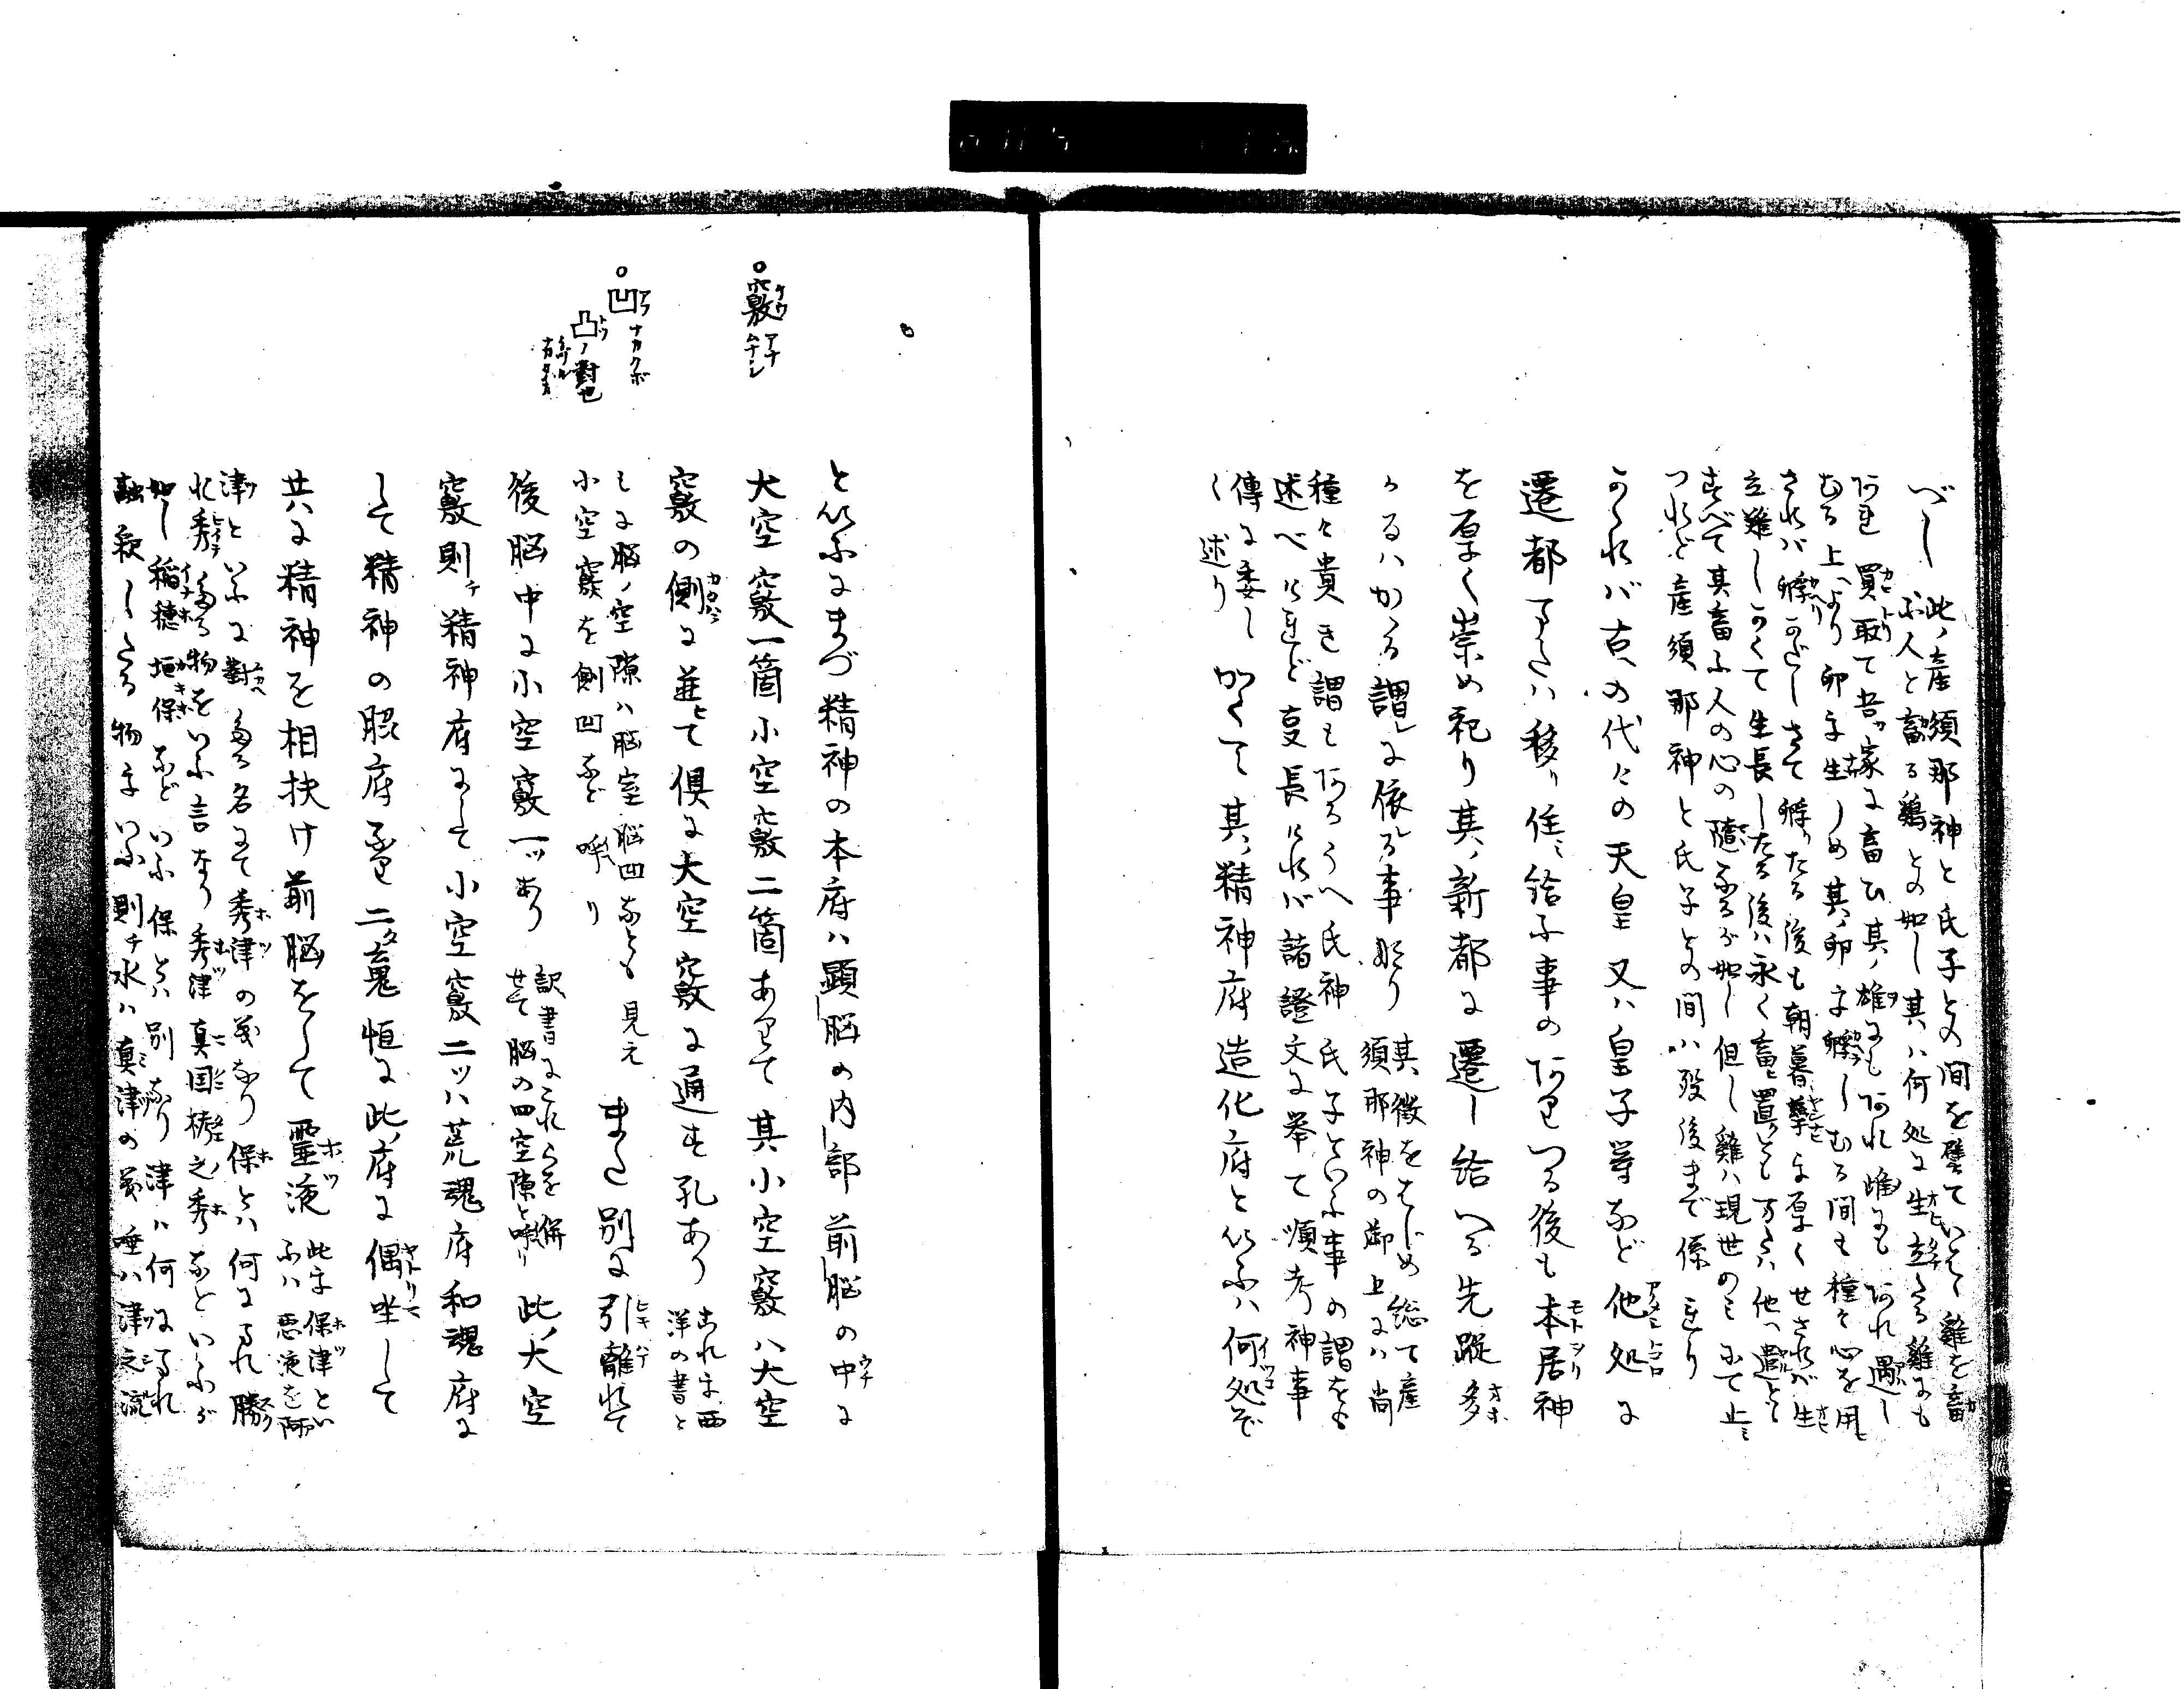 べし 此ノ産須那神と氏子との間を譬ていはゞ雞を畜
ふ人と畜る鶏との如し其ハ何処に生立たる雞にも
あれ買取て吾ガ家に畜ひ其ノ雄にもあれ雌にもあれ遇し
むる上より卵を生しめ其ノ卵を孵しむる間も種々心を用
されバ孵がたしさて孵りたる後も朝暮撃を厚くせされバ生
立難しかくて生長したる後ハ永く畜置とも万たハ他へ遣とも
すべて其畜ふ人の心の随なるが如し但し雞ハ現世のミにて止ミ
つれど産須那神と氏子との間ハ殁後まで係れり
かゝれバ古への代々の天皇又ハ皇子等など他処に
遷都またハ移り住ミ給ふ事のありつる後も本居神
を厚く崇め祀り其ノ新都に遷し給へる先蹤多
かるハかゝる謂レに依レる事なり 其徴をはじめ総て産
須那神の御上にハ尚
種々貴き謂もあるうへ氏神氏子といふ事の謂をも
述べけれど亘長けれバ諸證文に挙て順考神事
傳に委し
く述り かくて其ノ精神府造化府といふハ何処ぞ
といふにまづ精神の本府ハ顕脳の内部前脳の中に
大空竅一箇小空竅二箇ありて其小空竅ハ大空
竅の側に並て倶に大空竅に通す孔あり これを西
洋の書と
もに脳ノ空隙ハ脳室脳凹なとも見え
小空竅を側凹など呼り また別に引離れて
後脳中に小空竅一ッあり 訳書にこれらを併
せて脳の四空隙と呼り 此ノ大空
竅則チ精神府にして小空竅二ッハ荒魂府和魂府に
して精神の脇府なり二タ魂恒に此ノ府に偶坐して
共に精神を相扶け前脳をして霊液 此を保津とい
ふハ悪液を阿
津といふに對へたる名にて秀津の義なり保とハ何にまれ勝
れ秀たる物をいふ言なり秀津真国樴之秀などいふが
如し稲穂垣保などいふ保とハ別なり津ハ何にまれ
融釈したる物をいふ則チ水ハ真津の義唾ハ津之流
○竅 ケウ アナ ムナシ
○凹 アフ ナカクボ
凸ノ對也